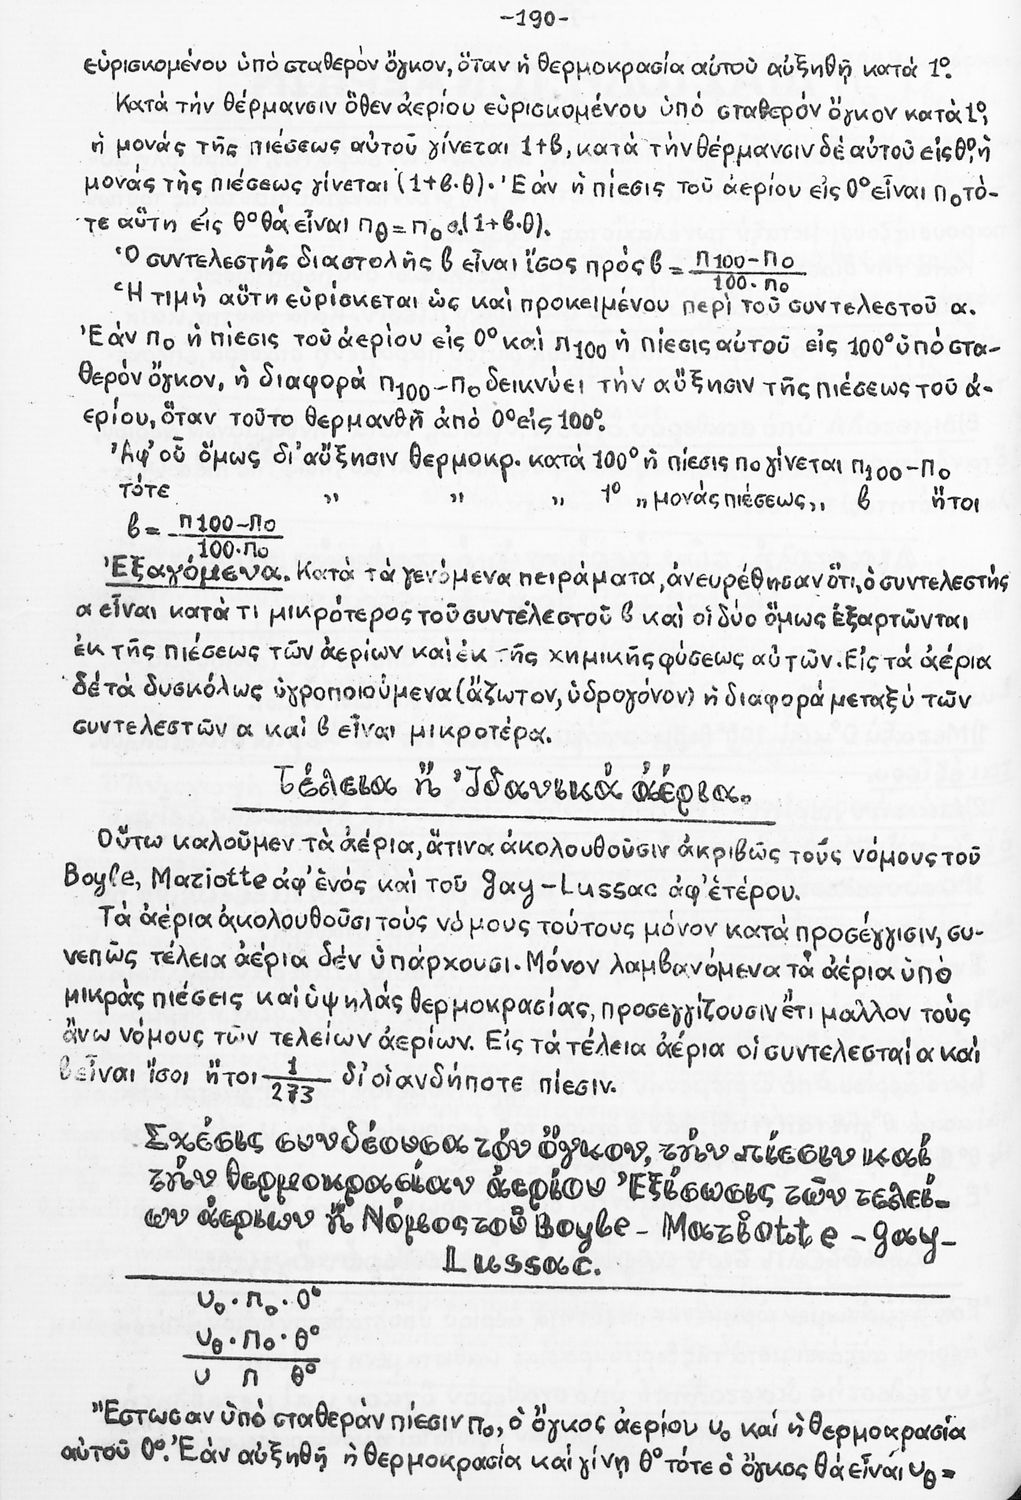 -190-
εὑρισκομένου ὑπό σταθερόν ὄγκον, ὅταν ἡ θερμοκρασία αὐτοῦ αὐξηθῇ κατά 1°.
Κατά τήν θέρμανσιν ὅθεν ἀερίου εὑρισκομένου ὑπό σταθερόν ὄγκον κατά 1°,
ἡ μονάς τῆς πιέσεως αὐτοῦ γίνεται 1+β, κατά τήν θέρμανσιν δέ αὐτοῦ εἰς θ°, ἡ
μονάς τῆς πιέσεως γίνεται (1+β·θ). Ἐάν ἡ πίεσις τοῦ ἀερίου εἰς 0° εἶναι π₀ τό-
τε αὕτη εἰς θ° θά εἶναι π_θ = π₀.(1+β·θ).
Ὁ συντελεστής διαστολῆς β εἶναι ἴσος πρός β = π100-π0 / 100·π0
Ἡ τιμή αὕτη εὑρίσκεται ὡς καί προκειμένου περί τοῦ συντελεστοῦ α.
Ἐάν π₀ ἡ πίεσις τοῦ ἀερίου εἰς 0° καί π₁₀₀ ἡ πίεσις αὐτοῦ εἰς 100° ὑπό στα-
θερόν ὄγκον, ἡ διαφορά π₁₀₀-π₀ δεικνύει τήν αὔξησιν τῆς πιέσεως τοῦ ἀ-
ερίου, ὅταν τοῦτο θερμανθῇ ἀπό 0° εἰς 100°.
Ἀφ' οὗ ὅμως δι' αὔξησιν θερμοκρ. κατά 100° ἡ πίεσις π0 γίνεται π₁₀₀-π₀
τότε „ „ „ 1° „ μονάς πιέσεως „ β ἤτοι
β = π100-π0 / 100·π0
Ἐξαγόμενα. Κατά τά γενόμενα πειράματα, ἀνευρέθησαν ὅτι, ὁ συντελεστής
α εἶναι κατά τι μικρότερος τοῦ συντελεστοῦ β καί οἱ δύο ὅμως ἐξαρτῶνται
ἐκ τῆς πιέσεως τῶν ἀερίων καί ἐκ τῆς χημικῆς φύσεως αὐτῶν. Εἰς τά ἀέρια
δέ τά δυσκόλως ὑγροποιούμενα (ἄζωτον, ὑδρογόνον) ἡ διαφορά μεταξύ τῶν
συντελεστῶν α καί β εἶναι μικροτέρα.
Τέλεια ἤ Ἰδανικά ἀέρια.
Οὕτω καλοῦμεν τά ἀέρια, ἅτινα ἀκολουθοῦσιν ἀκριβῶς τούς νόμους τοῦ
Boyle, Mariotte ἀφ' ἑνός καί τοῦ Gay-Lussac ἀφ' ἑτέρου.
Τά ἀέρια ἀκολουθοῦσι τούς νόμους τούτους μόνον κατά προσέγγισιν, συ-
νεπῶς τέλεια ἀέρια δέν ὑπάρχουσι. Μόνον λαμβανόμενα τά ἀέρια ὑπό
μικράς πιέσεις καί ὑψηλάς θερμοκρασίας, προσεγγίζουσιν ἔτι μᾶλλον τούς
ἄνω νόμους τῶν τελείων ἀερίων. Εἰς τά τέλεια ἀέρια οἱ συντελεσταί α καί
β εἶναι ἴσοι ἤτοι 1/273 δι' οἱανδήποτε πίεσιν.
Σχέσις συνδέουσα τόν ὄγκον, τήν πίεσιν καί
τήν θερμοκρασίαν ἀερίου Ἐξίσωσις τῶν τελεί-
ων ἀερίων ἤ Νόμος τοῦ Boyle - Mariotte - Gay-
Lussac.
υ₀ · π₀ · 0°
υ_θ · π₀ · θ°
υ π θ°
Ἔστωσαν ὑπό σταθεράν πίεσιν π₀, ὁ ὄγκος ἀερίου υ₀ καί ἡ θερμοκρασία
αὐτοῦ 0°. Ἐάν αὐξηθῇ ἡ θερμοκρασία καί γίνῃ θ° τότε ὁ ὄγκος θά εἶναι υ_θ =